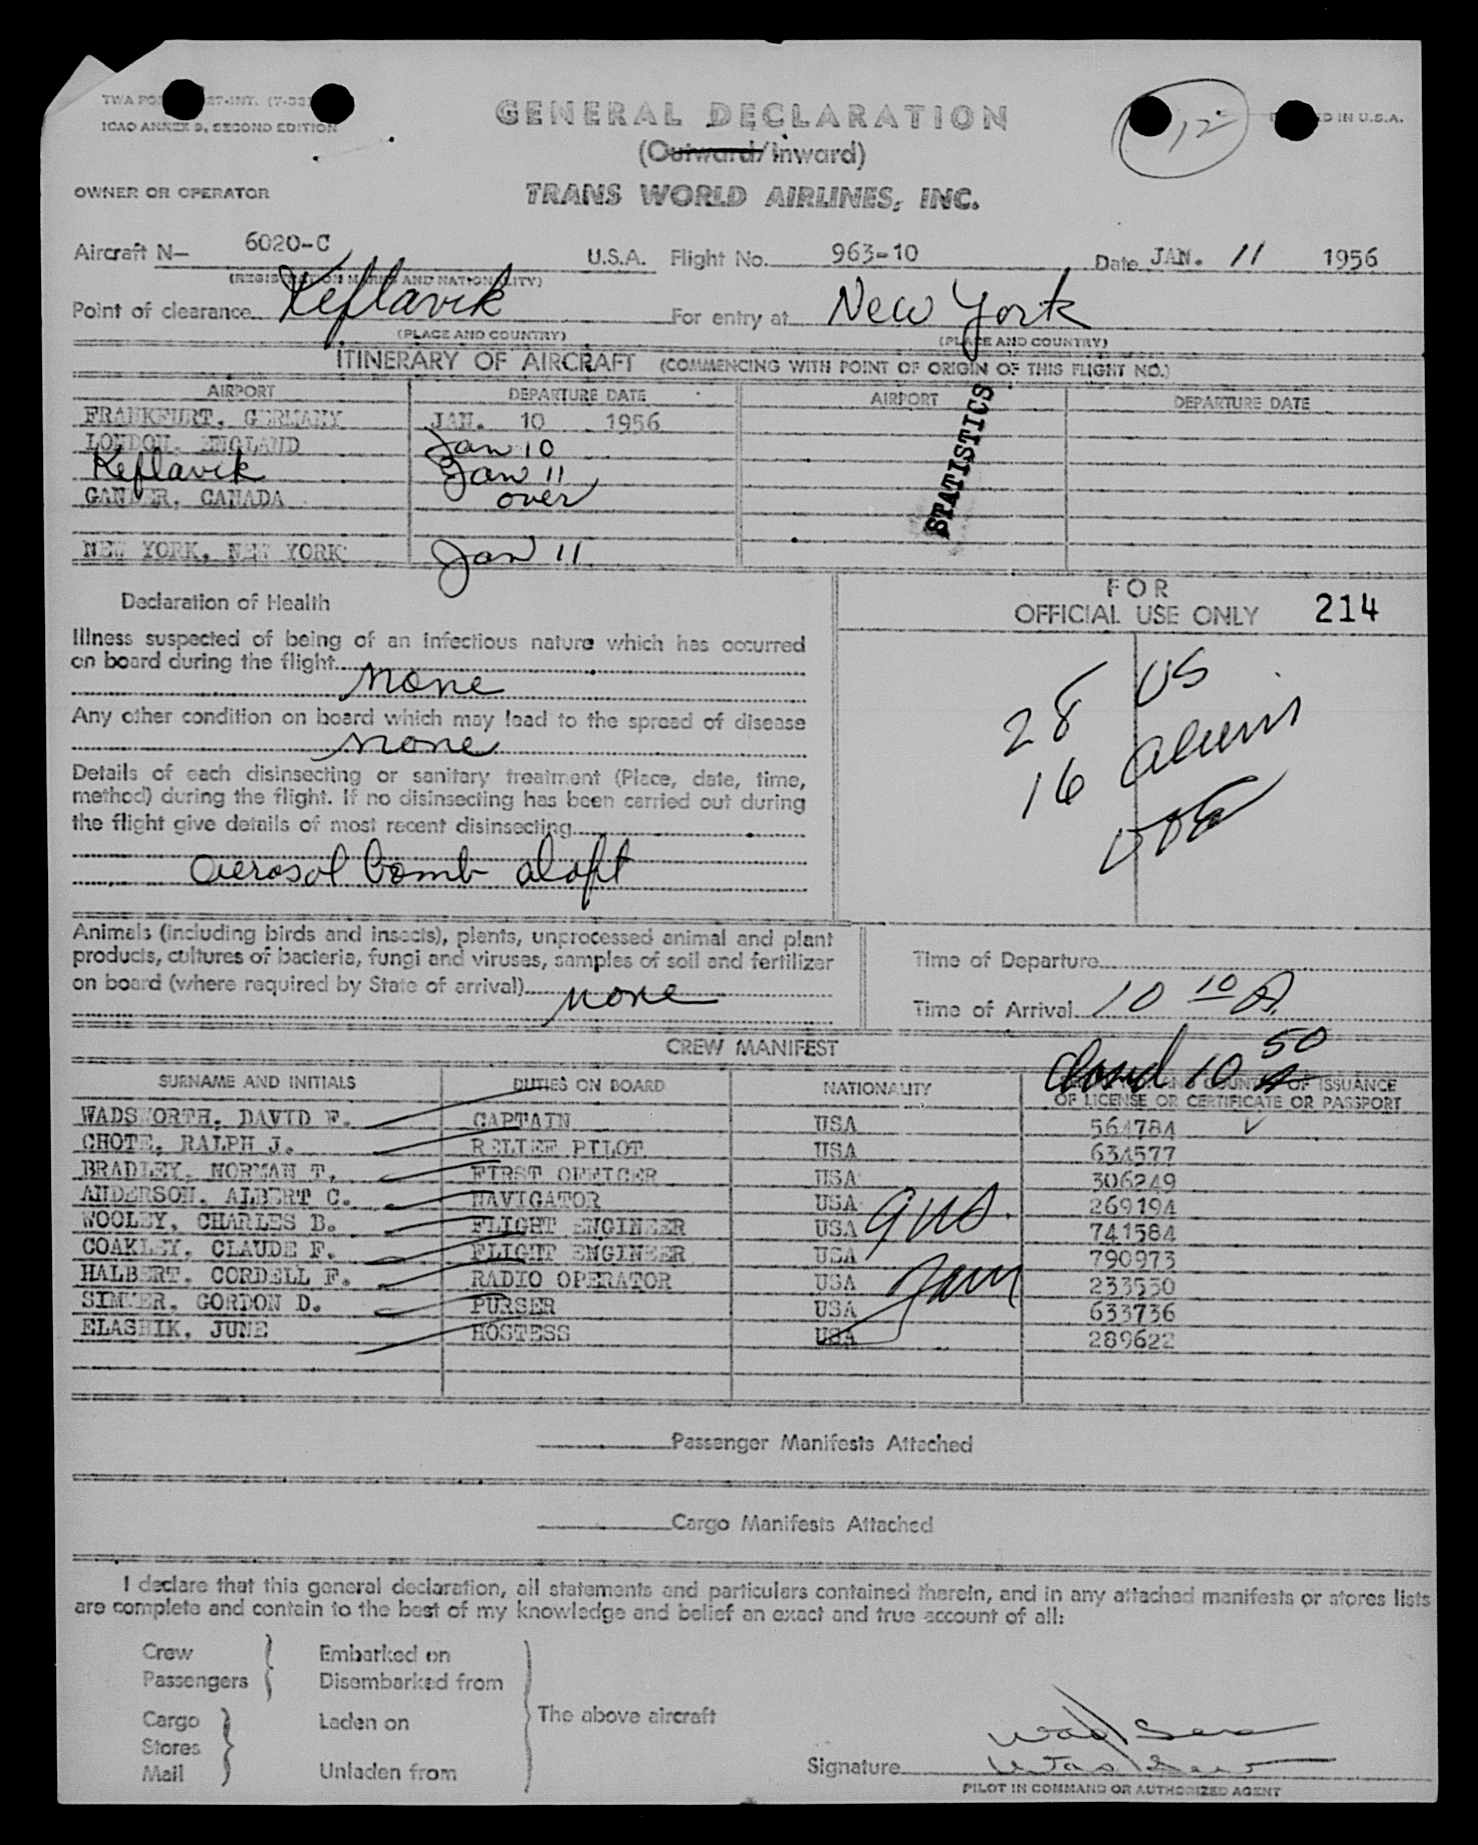 ICAO ANNEX 9, SECOND EDITION
GENERAL DECLARATION
(Outward/Inward)
12
IN U.S.A.
OWNER OR OPERATOR
TRANS WORLD AIRLINES, INC.
Aircraft N- 6020-C U.S.A. Flight No. 963-10 Date JAN. 11 1956
(REGISTRATION MARKS AND NATIONALITY)
Point of clearance Keflavik For entry at New York
(PLACE AND COUNTRY) (PLACE AND COUNTRY)
ITINERARY OF AIRCRAFT (COMMENCING WITH POINT OF ORIGIN OF THIS FLIGHT NO.)
AIRPORT DEPARTURE DATE AIRPORT DEPARTURE DATE
FRANKFURT, GERMANY JAN. 10 1956
LONDON, ENGLAND Jan 10
Keflavik Jan 11
GANDER, CANADA over
NEW YORK, NEW YORK Jan 11
STATISTICS
Declaration of Health
FOR
OFFICIAL USE ONLY 214
Illness suspected of being of an infectious nature which has occurred
on board during the flight
none
Any other condition on board which may lead to the spread of disease
none
28 US
16 aliens
Details of each disinsecting or sanitary treatment (Place, date, time,
method) during the flight. If no disinsecting has been carried out during
the flight give details of most recent disinsecting
aerosol bomb aloft
Animals (including birds and insects), plants, unprocessed animal and plant
products, cultures of bacteria, fungi and viruses, samples of soil and fertilizer
on board (where required by State of arrival) none
Time of Departure
Time of Arrival 10 10 A
closed 10 50 A
CREW MANIFEST
SURNAME AND INITIALS DUTIES ON BOARD NATIONALITY AND COUNTRY OF ISSUANCE
OF LICENSE OR CERTIFICATE OR PASSPORT
WADSWORTH, DAVID F. CAPTAIN USA 564784
CHOTE, RALPH J. RELIEF PILOT USA 634577
BRADLEY, NORMAN T. FIRST OFFICER USA 306249
ANDERSON, ALBERT C. NAVIGATOR USA 269194
WOOLEY, CHARLES B. FLIGHT ENGINEER USA 741584
COAKLEY, CLAUDE F. FLIGHT ENGINEER USA 790973
HALBERT, CORDELL F. RADIO OPERATOR USA 233530
GORDON D. PURSER USA 633736
JUNE HOSTESS USA 289622
9 US
Passenger Manifests Attached
Cargo Manifests Attached
I declare that this general declaration, all statements and particulars contained therein, and in any attached manifests or stores lists
are complete and contain to the best of my knowledge and belief an exact and true account of all:
Crew Embarked on
Passengers Disembarked from
The above aircraft
Cargo Laden on
Stores
Mail Unladen from
Signature
PILOT IN COMMAND OR AUTHORIZED AGENT